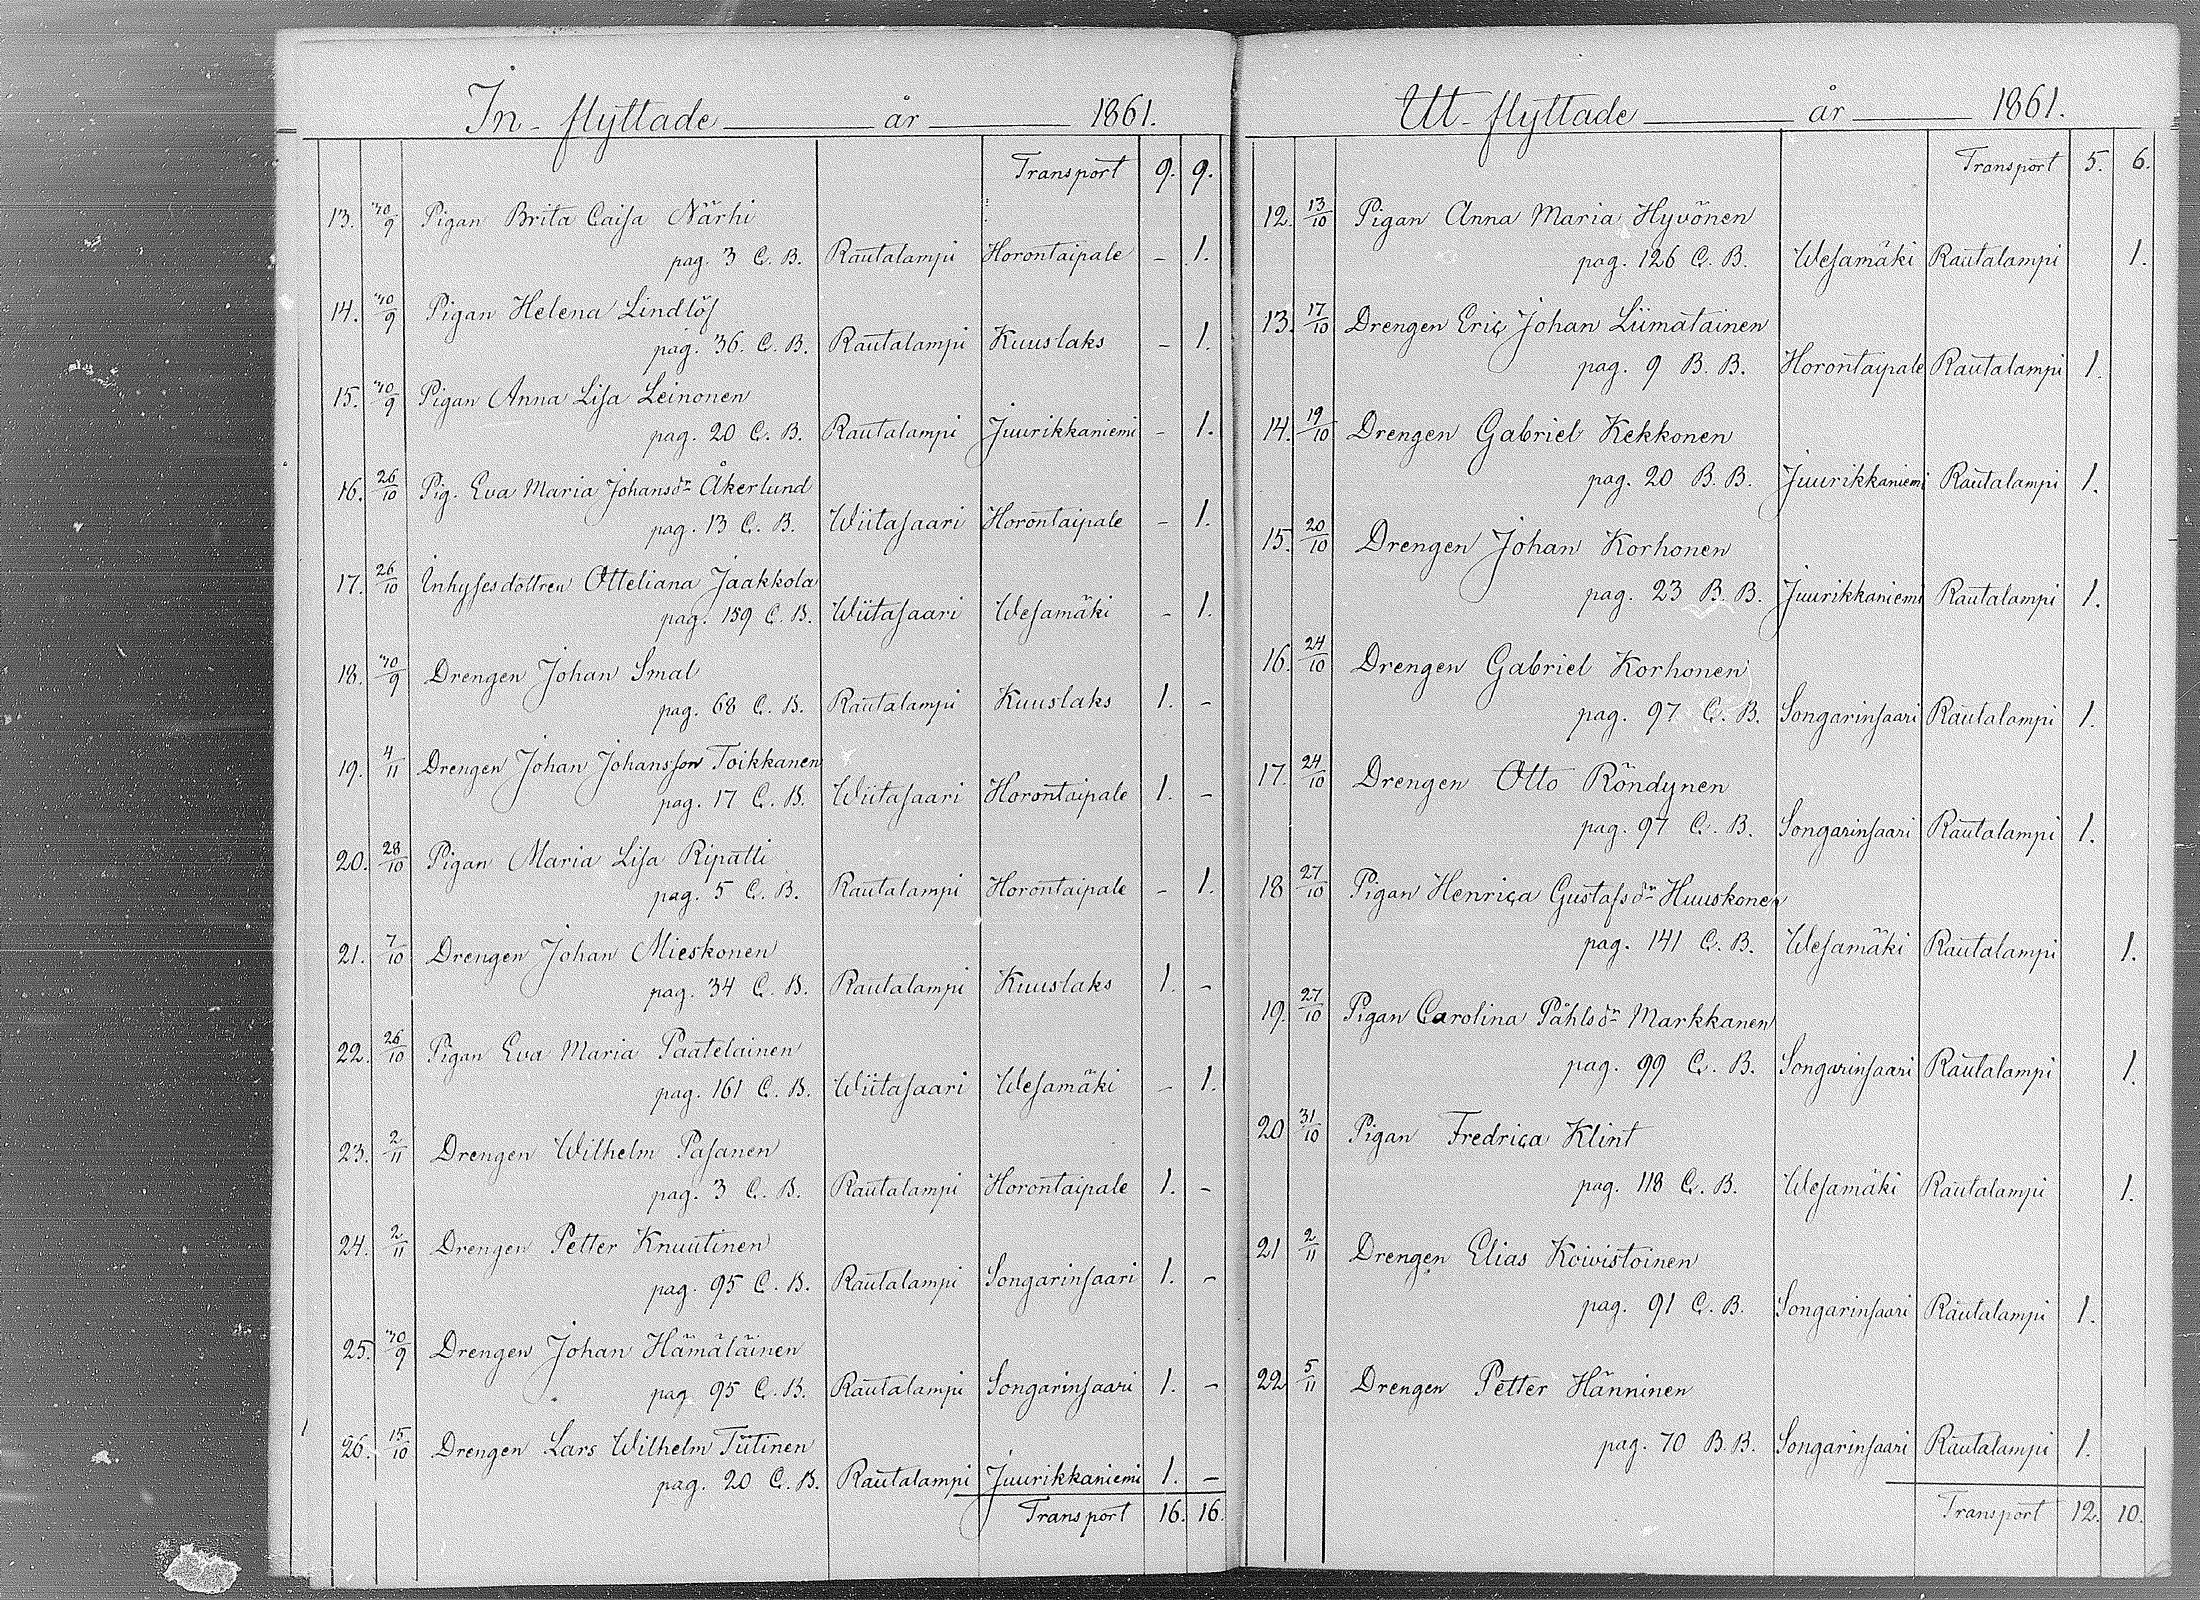 In-flyttade år 1861.
Transport 9. 9.
13. 30/9 Pigan Brita Caisa Närhi
pag. 3 C. B. Rautalampi Horontaipale - 1.
14. 30/9 Pigan Helena Lindlöf
pag. 36. C. B. Rautalampi Kuuslaks - 1.
15. 30/9 Pigan Anna Lisa Leinonen
pag. 20 C. B. Rautalampi Juurikkaniemi - 1.
16. 26/10 Pig. Eva Maria Johansdr Åkerlund
pag. 13 C. B. Wiitasaari Horontaipale - 1.
17. 26/10 Inhysesdottren Otteliana Jaakkola
pag. 159 C. B. Wiitasaari Wesamäki - 1.
18. 30/9 Drengen Johan Smal
pag. 68 C. B. Rautalampi Kuuslaks 1. -
19. 4/11 Drengen Johan Johansson Toikkanen
pag. 17 C. B. Wiitasaari Horontaipale 1. -
20. 28/10 Pigan Maria Lisa Ripatti
pag. 5 C. B. Rautalampi Horontaipale - 1.
21. 7/10 Drengen Johan Mieskonen
pag. 34 C. B. Rautalampi Kuuslaks 1. -
22. 26/10 Pigan Eva Maria Paatelainen
pag. 161 C. B. Wiitasaari Wesamäki - 1.
23. 2/11 Drengen Wilhelm Pasanen
pag. 3 C. B. Rautalampi Horontaipale 1. -
24. 2/11 Drengen Petter Knuutinen
pag. 95 C. B. Rautalampi Songarinsaari 1. -
25. 30/9 Drengen Johan Hämäläinen
pag 95 C. B. Rautalampi Songarinsaari 1. -
26. 15/10 Drengen Lars Wilhelm Tiitinen
pag. 20 C. B. Rautalampi Juurikkaniemi 1. -
Transport 16. 16.
Ut-flyttade år 1861.
Transport 5. 6.
12. 13/10 Pigan Anna Maria Hyvönen
pag. 126 C. B. Wesamäki Rautalampi 1.
13. 17/10 Drengen Eric Johan Liimatainen
pag. 9 B. B. Horontaipale Rautalampi 1.
14. 19/10 Drengen Gabriel Kekkonen
pag. 20 B. B. Juurikkaniemi Rautalampi 1.
15. 20/10 Drengen Johan Korhonen
pag. 23 B. B. Juurikkaniemi Rautalampi 1.
16. 24/10 Drengen Gabriel Korhonen
pag. 97 C. B. Songarinsaari Rautalampi 1.
17. 24/10 Drengen Otto Röndynen
pag. 97 C. B. Songarinsaari Rautalampi 1.
18 27/10 Pigan Henrica Gustafsdr Huuskonen
pag. 141 C. B. Wesamäki Rautalampi 1.
19. 27/10 Pigan Carolina Påhlsdr Markkanen
pag. 99 C. B. Songarinsaari Rautalampi 1.
20 31/10 Pigan Fredrica Klint
pag. 118 C. B. Wesamäki Rautalampi 1.
21 2/11 Drengen Elias Koivistoinen
pag. 91 C. B. Songarinsaari Rautalampi 1.
22 5/11 Drengen Petter Hänninen
pag. 70 B. B. Songarinsaari Rautalampi 1.
Transport 12. 10.